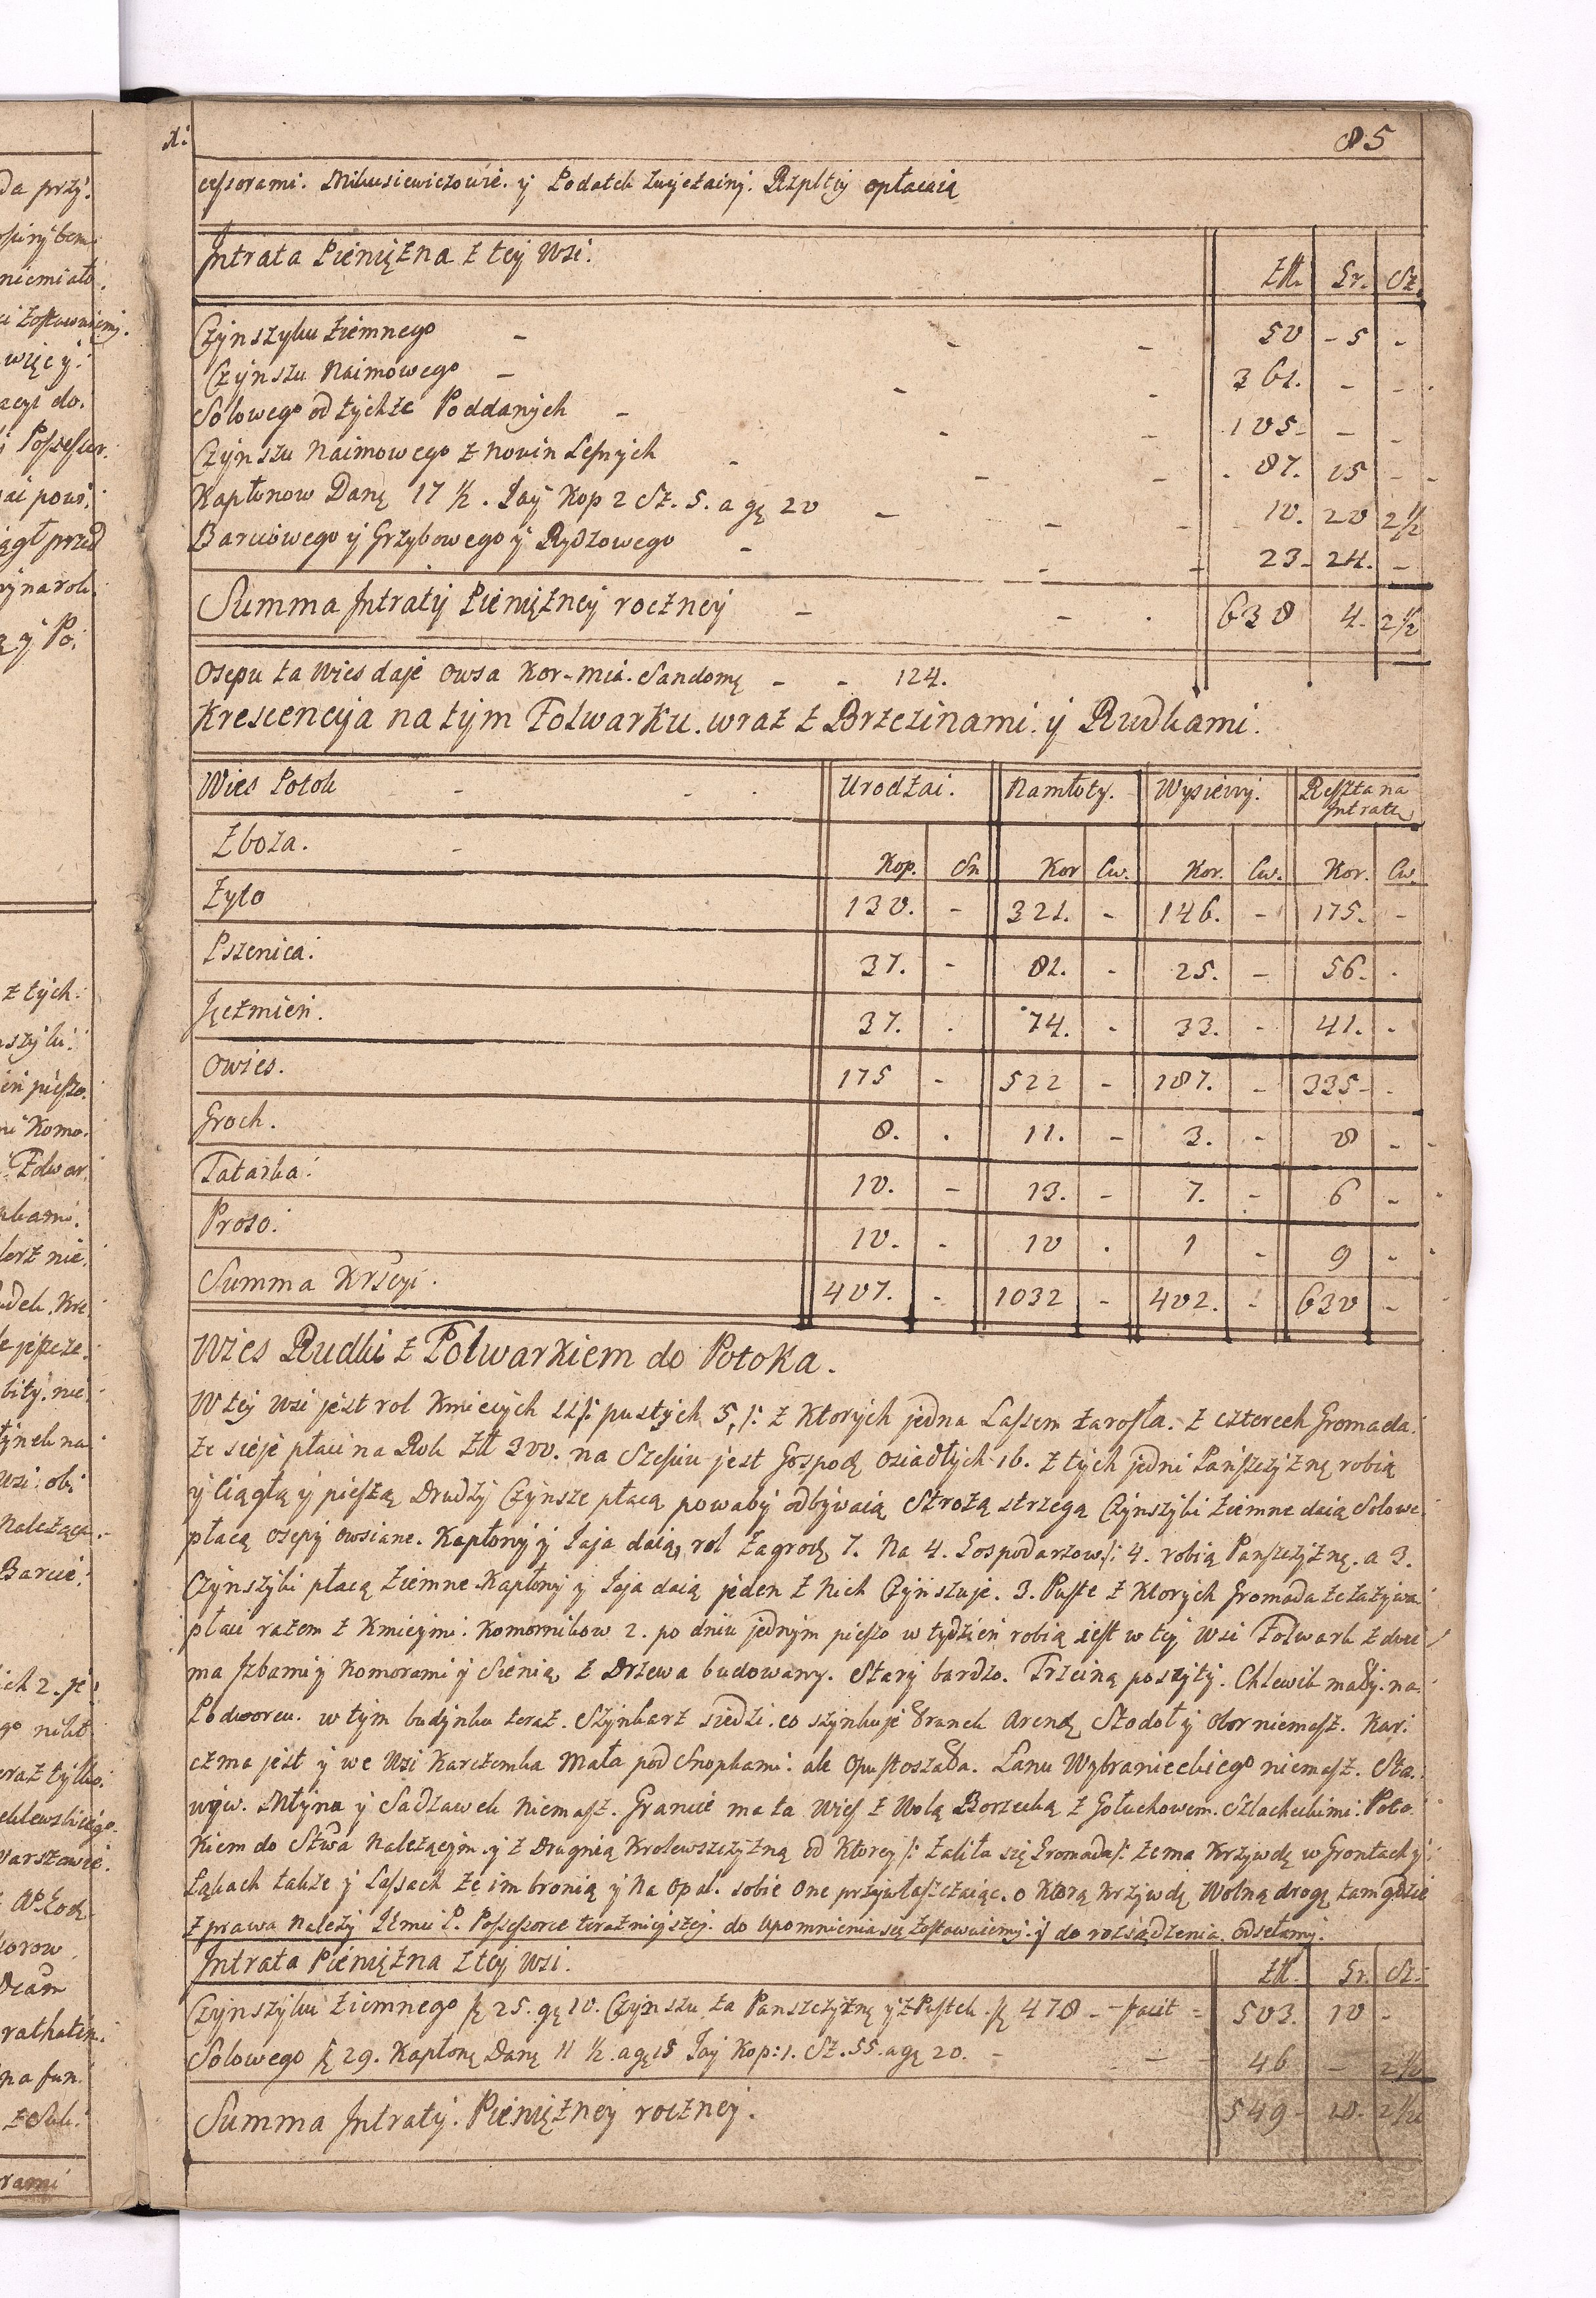 85
cessorami. Mikusiewiczowie. y Podatek zwyczainy. Rzpltey opłacaią
Jntrata Pieniężna z tey Wsi. Złł. Gr. Sz.
Czynszyku Ziemnego - - - 50 - 5 -
Czynszu Naimowego - - - 361. - -
Solowego od tychże Poddanych - - - 105 - -
Czynszu Naimowego z Nowin Lesnych - - - 87. 15 -
Kapłonow Danę 17 ½. Jay Kop 2 Sz. 5. a gę 20 - - - 10. 20 2½
Barciowego y Grzybowego y Rydzowego - - - 23 - 24. -
Summa Jntraty Pieniężney roczney - - . 638 4. 2½
Osepu ta Wies daje Owsa Kor. mia. Sandomę - - 124.
Krescencyja na tym Folwarku. wraz z Brzezinami. y Rudkami.
Wies Potok - - . Urodzai. Namłoty. Wysiewy. Reszta na
Jntratę
Zboza. - Kop. Sn Kor Cw. Kor. Cw. Kor. Cw.
Zyto 130. - 321. - 146. - 175. -
Pszenica. 37. - 81. - 25. - 56. .
Jęczmień. 37. . 74. - 33. - 41. -
Owies. 175 - 522 - 187. - 335 - .
Groch. 8. . 11. - 3. - 8 -
Tatarka. 10. - 13. - 7. - 6 -
Proso. 10. - 10 . 1 - 9 -
Summa Krscyi. 407. - 1032 - 402. - 630 -
Wies Rudki z Folwarkiem do Potoka.
W tey Wsi jest rol Kmiecych 11/: pustych 5,/: z Ktorych jedna Lassem zarosła. z czterech Gromada.
że sieje płaci na Rok Złł 300. na Szesciu jest Gospodę osiadłych 16. z tych jedni Pańszczyznę robią
y ciągłą y pieszą Drudzy Czynsze płacą powaby odbywaią Strożą strzegą Czynszyki ziemne daią Solowe.
płacą osepy owsiane. Kapłony y Jaja daią, rol Zagrodę 7. Na 4. Gospodarzow./: 4. robią Panszczyznę. a 3.
Czynszyki płacą ziemne Kapłony y Jaja daią jeden z Nich Czynszuje. 3. Puste z Ktorych Gromada że zażywa
płaci razem z Kmieymi. Komornikow 2. po dniu jednym pieszo w tydzień robią iest w tey Wsi Folwark z dwie
ma Jzbami y Komorami y Sienią, z Drzewa budowany. Stary bardzo. Trzciną poszyty. Chlewik mały. na.
Podworcu. w tym budynku teraz. Szynkarz siedzi. co szynkuje Trunek Arendę Stodoł y Obor niemasz. Kar.
czma jest y we Wsi Karczemka Mała pod Snopkami. ale Opustoszała. Lanu Wybranieckiego niemasz. Sta.
wow. Młyna y Sadzawek Niemasz. Granice ma ta Wieś z Wolą Borzecką z Gołuchowem. Szlacheckimi. Poto.
Kiem do Stwa Należącym. y z Drugnią Krolewszczyzną od Ktorey /: żaliła się Gromada /: że ma Krzywdę w Grontach y
Łąkach także y Lassach że im bronią y Na Opał. sobie one przywłaszczaiąc. o ktorą Krzywdę Wolną drogę tam gdzie
z prawa Należy Jemci P. Possessorce teraznieyszey. do Upomnienia się zostawuiemy. y do rozsądzenia. odsełamy.
Jntrata Pieniężna z tey Wsi. Złł. Gr. Sz.
Czynszyku Ziemnego fę 25. gę 10. Czynszu za Panszczyznę y z Pustek. fę 478 - facit - 503. 10 -
Solowego fę 29. Kapłonę Danę 11 ½. agę 15 Jay Kop: 1. Sz. 55. agę 20. - - 46 - 2½
Summa Jntraty. Pieniężney roczney. 549 - 10. 2½